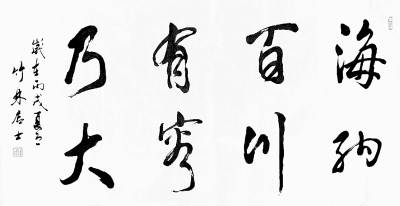 海纳
百川
有容
乃大
岁在丙戌夏
竹林居士